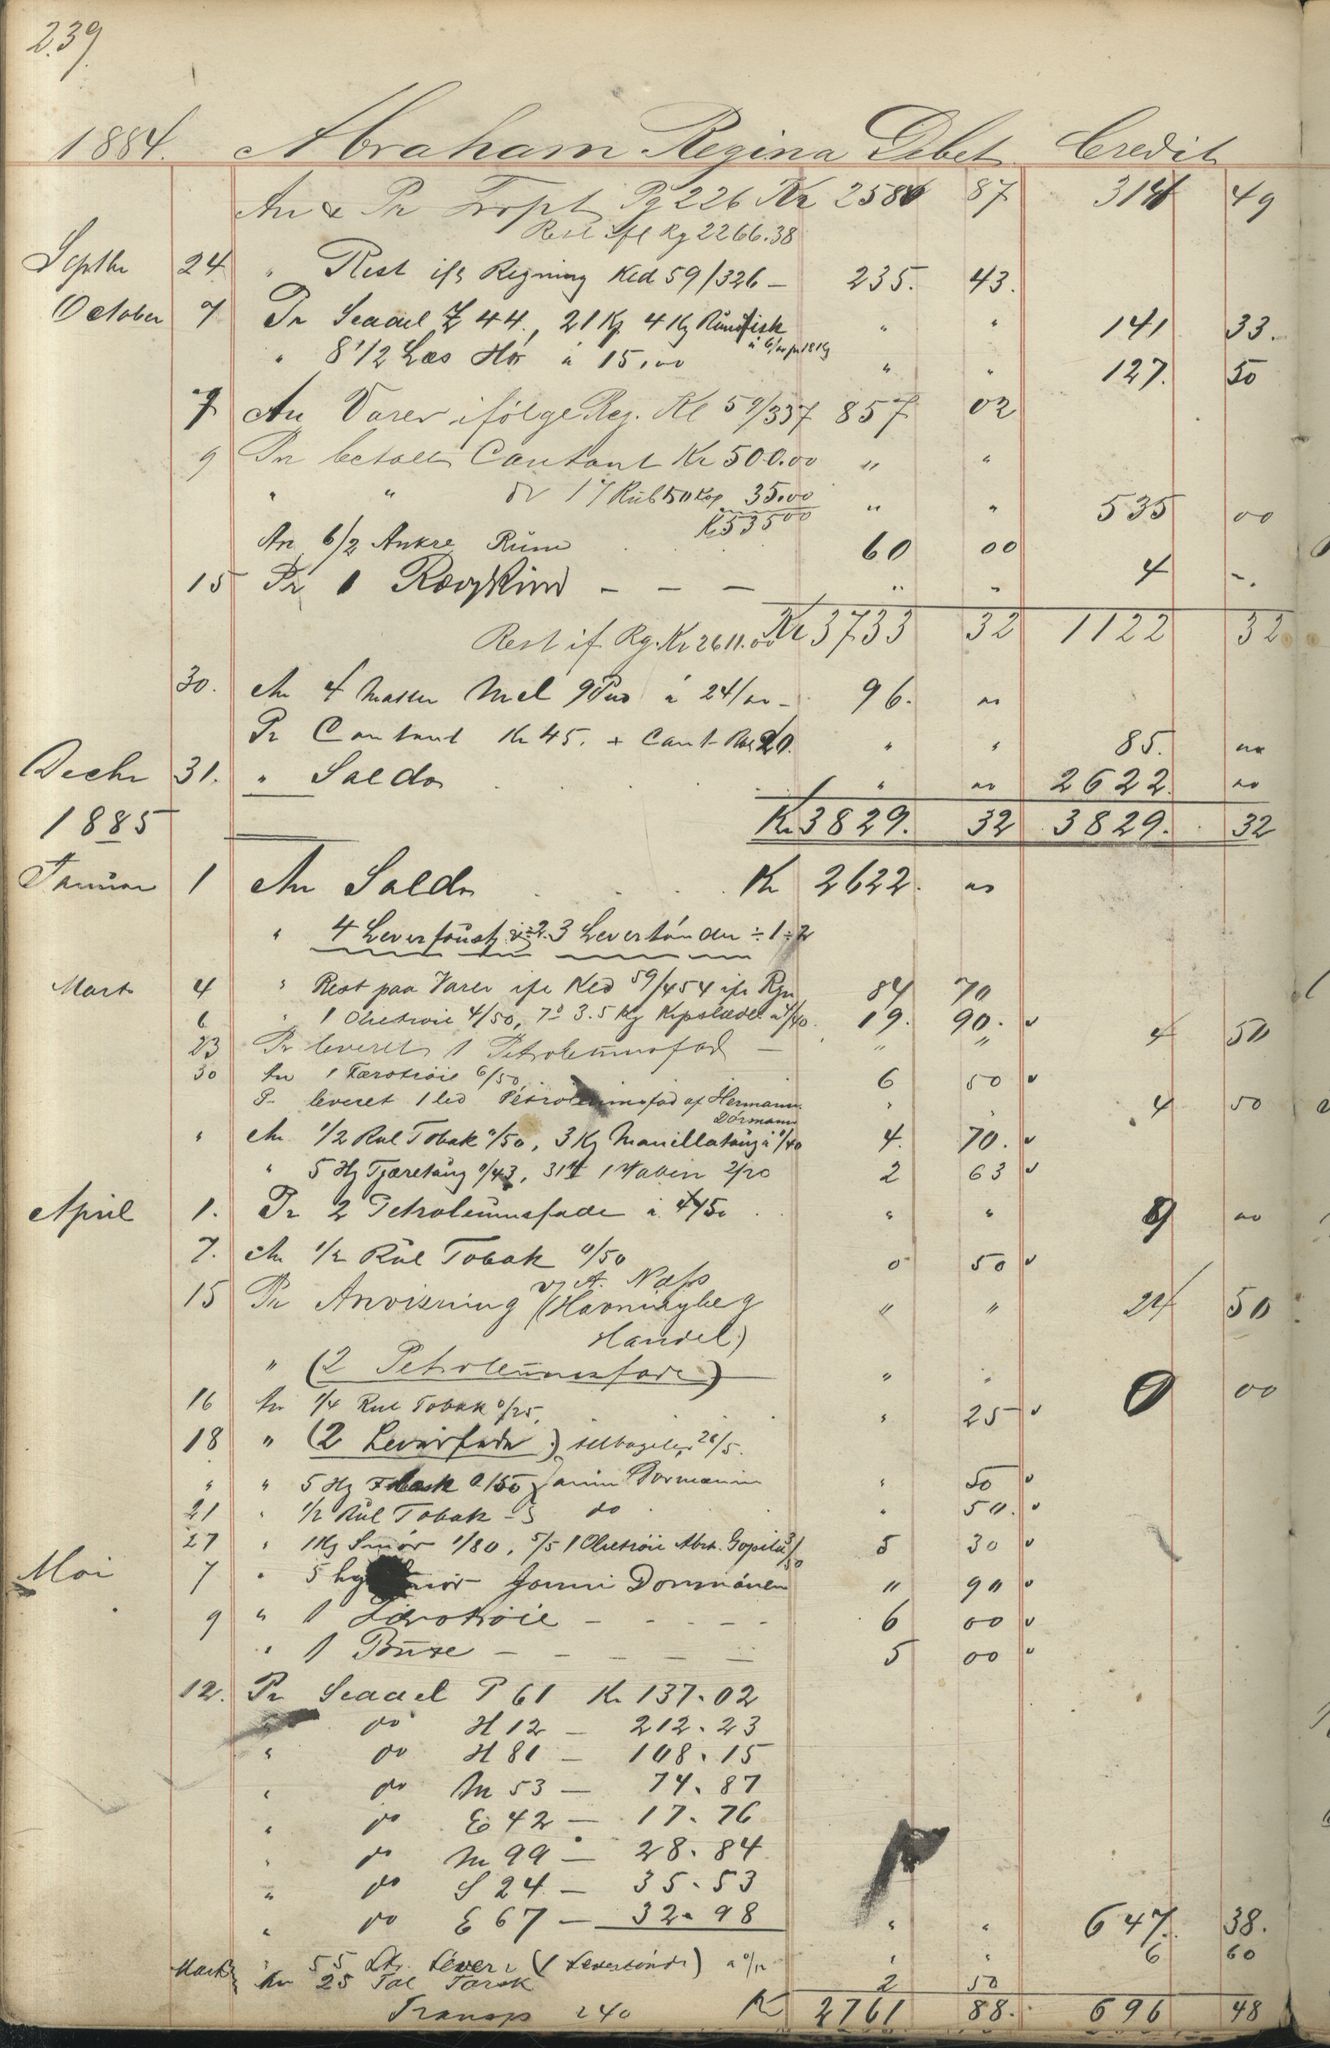 239
1884. Abraham Regina Debet Credit
An & Pr Trspt Pg 226 Kr 2580 87 314 49
Rest ifl Rg 2266.38
Septbr 24. " Rest ifl Regning Klad 59/326 — 235. 43.
October 7 Pr Seddel Z 44., 21 Kg 4 Kg Rundfisk " " 141 33.
" 8 1/2 Læs Hö à 15,00 " " 127. 50
7 An Varer ifölge Reg. Kl 59/337 857 02
9 Pr betalt Contant Kr 500.00 " "
" " do 17 Rub 50 Kop 35.00 " " 535 00
Kr 535 00
An 6/2 Ankre Rum 60 00
15 Pr 1 Rævskind — — — " " 4 -.
Kr 3733 32 1122 32
Rest if. Rg. Kr 2611.00
30. An 4 Matter Mel 9 Pud à 24/00 — 96. 00
Pr Contant Kr 45. + Cant 20. " " 85. 00
Decbr 31. " Saldo " 00 2622. 00
Kr 3829. 32 3829. 32
1885
Januar 1 An Saldo Kr 2622. 00
" 4 Leverfoustg ÷ 2. 3 Levertönder ÷ 1 ÷ 2
Marts 4 " Rest paa Varer ifl Klad 59/454 ifl Rgn 84 70
6 " 1 Olietröie 4/50, 7d 3.5 Kg Kipslæder à 4/40. 19. 90.
23 Pr leveret 1 Petroleumsfad — " " 4 50
30 An 1 Færotröie 6/50 6 50
Pr leveret 1 led Petroleumsfad af Hermann " " 4 50
Dörmann
" An 1/2 Rul Tobak 0/50, 3 Kg Manillatoug à 1/40 4. 70.
" 5 Hg Tjæretoug 0/43, 31te 1 2/20 2 63
April 1. Pr 2 Petroleumsfade à 4/50 " " 9 00
7. An 1/2 Rul Tobak 0/50 0 50
15 Pr Anvisning v/A. Næss " " 24 50
(Havningberg
Handel)
" (2 Petroleumsfade) " " 0 00
16 An 1/4 Rul Tobak 0/25. " 25
18 " (2 Leverfade) tilbagelev 28/5.
" " 5 Hg 0/50 Janni Dormanin " 50
21 " 1/2 Rul Tobak — do " 50.
27 " 1 Kg Smör 1/80, 5/5 1 Olietröie Abr. 3/50 5 30
Mai 7 " 5 hg Smör Janni Dormänen " 90
9 " 1 Færotröie — — — — 6 00
" 1 Buxe — — — — — 5 00
12. Pr Seddel P 61 Kr 137.02
" do H 12 — 212.23
" do H 81 — 108.15
" do M 53 — 74.87
" do E 42 — 17.76
" do M 99 — 28.84
" do S 24 — 35.53
" do E 67 — 32.98 " " 647. 38.
" 55 Ltr. Lever (1 Levertönde) à 0/12 " " 6 60
Marts An 25 Tal Torsk 2 50
Transp 240 Kr 2761 88. 696 48